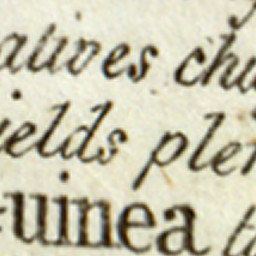 atives chu
ields plen
uinea t